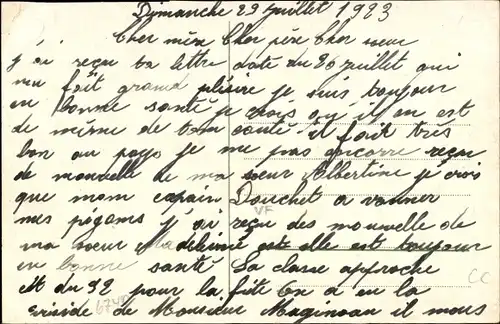 Dimanche 29 juillet 1923
Cher mère Cher père Cher soeur
j'ai reçu ta lettre daté du 26 juillet qui
ma fait grand plésire je suis toujour
en bonne santé je crois qu'il en est
de même de ton santé il fait très
bon au pays je me pas encorre reçu
de mouvelle de ma soeur Albertine je crois
que mom copain Douchet a vanner
mes pigoms j'ai reçu des mouvelle de
VF
ma soeur Madeleine este elle est toujour
en bonne santé La classe approche
CC
et du 92 pour la fête on a eu la
6745
de Monsieur Maginoau il mous